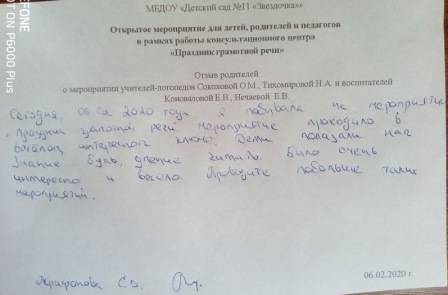 МБДОУ «Детский сад №11 «Звездочка»»
Открытое мероприятие для детей, родителей и педагогов
в рамках работы консультационного центра
«Праздник грамотной речи»
Отзыв родителей
о мероприятии учителей-логопедов Соколовой О.М., Тихомировой Н.А. и воспитателей
Коноваловой Е.В., Нечаевой Е.В.
Сегодня, 06 02 2020 года я побывала на мероприятие
"Праздник речи. мероприятие проходило в
веселом, интересном ключе. Дети показали нам
знание букв, умение читать. Было очень
интересно и весело. Проводите побольше таких
мероприятий.
06.02.2020 г.
FONE
OT ON P6000 Plus